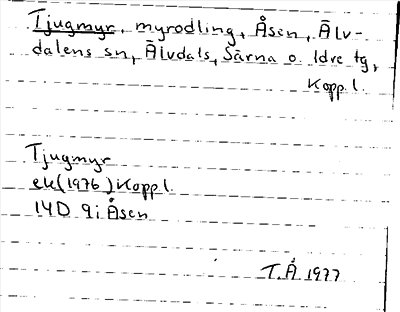 Tjugmyr, myrodling, Åsen, Älv-
dalens sn, Älvdals, Särna o. Idre tg,
Koppl.
Tjugmyr
ek (1976) Koppl.
14D 9i Åsen
T.Å 1977